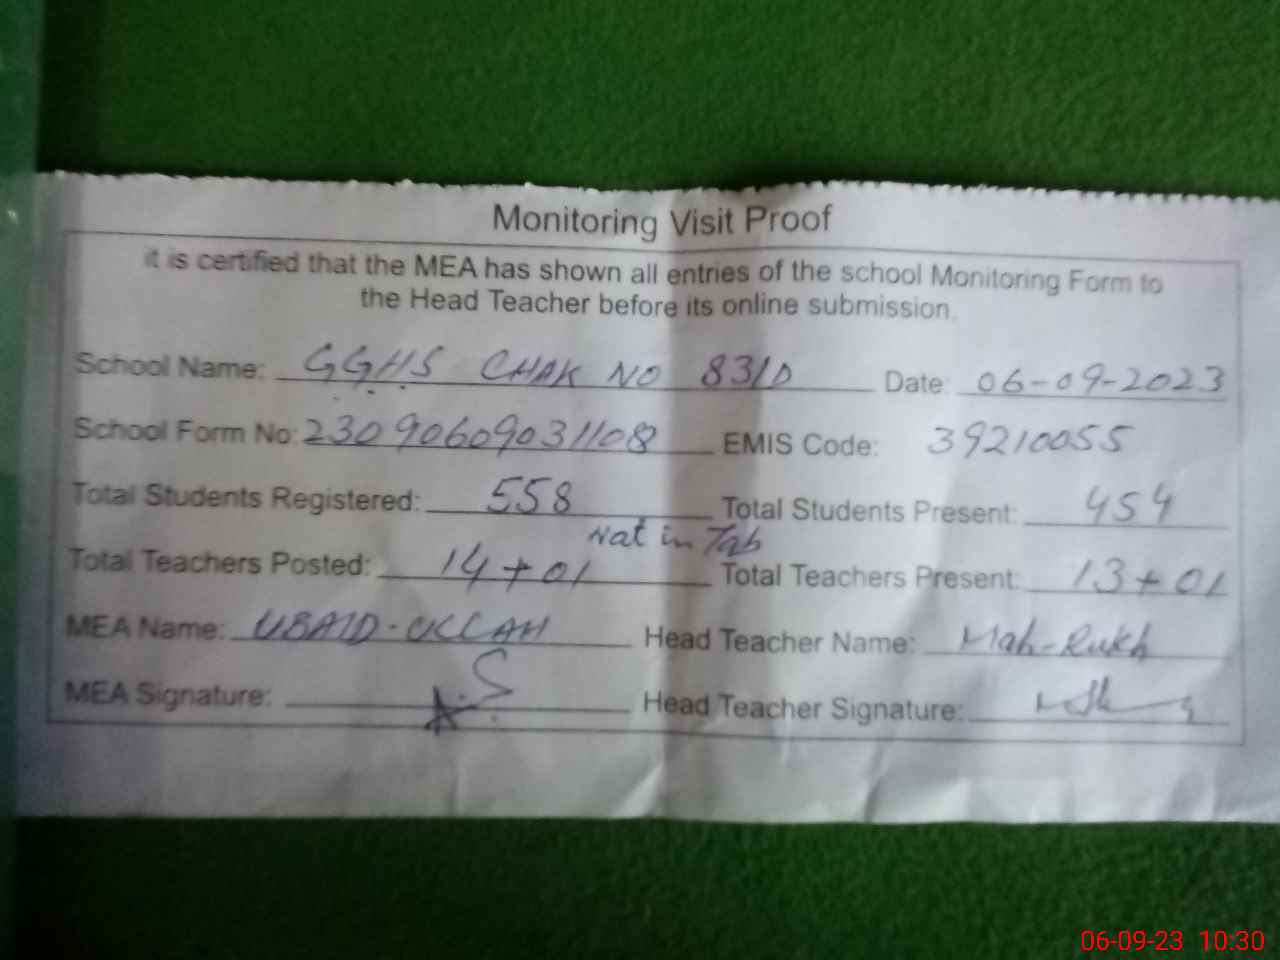 Monitoring Visit Proof
it is certified that the MEA has shown all entries of the school Monitoring Form to
the Head Teacher before its online submission.
School Name: GGHS CHAK NO 831D Date: 06-09-2023
School Form No: 23090609031108 EMIS Code: 39210055
Total Students Registered: 558 Total Students Present: 454
Nat in Tab
Total Teachers Posted: 14+01 Total Teachers Present: 13+01
MEA Name: UBAID-ULLAH Head Teacher Name: Mah-Rukh
MEA Signature: Head Teacher Signature:
06-09-23 10:30